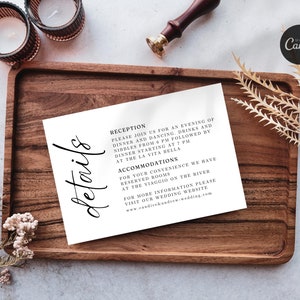 details
RECEPTION
PLEASE JOIN US FOR AN EVENING OF
DINNER AND DANCING. DRINKS AND
NIBBLES FROM 6 PM FOLLOWED BY
DINNER STARTING AT 7 PM
AT THE LA VITA BELLA
ACCOMMODATIONS
FOR YOUR CONVENIENCE WE HAVE
RESERVED ROOMS
AT THE VIAGGIO ON THE RIVER
FOR MORE INFORMATION PLEASE
VISIT OUR WEDDING WEBSITE